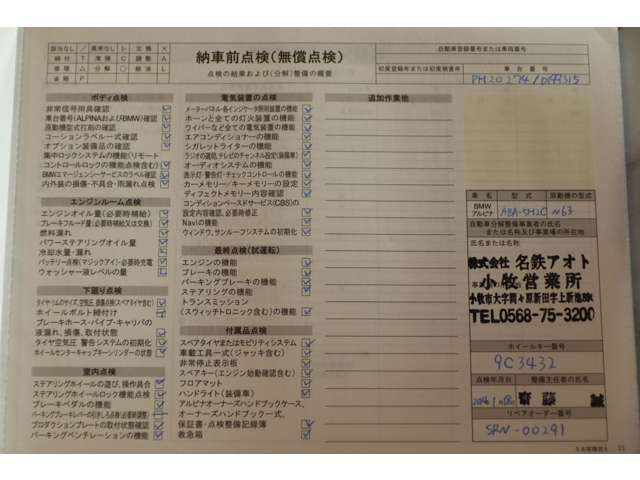 納車前点検(無償点検)
点検の結果および(分解)整備の概要
自動車登録番号または車両番号
初度登録年または初度検査年
車台番号
該当なし
異常なし
交換
締付
清掃
調整
修理
分解
給油
省略
ボディ点検
非常信号用具確認
車台番号(ALPINAおよびBMW)確認
原動機型式打刻の確認
コーションラベル一式確認
オプション装備品の確認
集中ロックシステムの機能(リモート
コントロールロックの機能点検含む)
BMWエマージェンシーサービスのラベル確認
内外装の損傷・不具合・雨漏れ点検
エンジンルーム点検
エンジンオイル量(必要時補給)
ブレーキフルード量(必要時補給又は交換)
燃料漏れ
パワーステアリングオイル量
冷却水量・漏れ
バッテリー点検(マジックアイ)・必要時充電
ウォッシャー液レベルの量
下廻り点検
タイヤ・リムのサイズ、空気圧、損傷点検(スペアタイヤ含む)
ホイールボルト締付け
ブレーキホース・パイプ・キャリパの
液漏れ、損傷、取付状態
タイヤ空気圧 警告システムの初期化
ホイールセンターキャップキーシリンダーの状態
室内点検
ステアリングホイールの遊び、操作具合
ステアリングホイールロック機能点検
ブレーキペダルの機能
パーキングブレーキレバーの引きしろ点検(必要時調整)
プロダクションプレートの取付状態確認
パーキングベンチレーションの機能
電気装置の点検
メーターパネル・各インジケータ照明装置の機能
ホーンと全ての灯火装置の機能
ワイパーなど全ての電気装置の機能
エアコンディショナーの機能
シガレットライターの機能
ラジオの選局、テレビのチャンネル設定(装備車)
オーディオシステムの機能
表示灯・警告灯・チェックコントロールの機能
カーメモリー/キーメモリーの設定
ディフェクトメモリー内容確認
コンディションベースドサービス(CBS)の
設定内容確認、必要時修正
Naviの機能
ウィンドウ、サンルーフシステムの初期化
最終点検(試運転)
エンジンの機能
ブレーキの機能
パーキングブレーキの機能
ステアリングの機能
トランスミッション
(スウィッチトロニック含む)の機能
付属品点検
スペアタイヤまたはモビリティシステム
車載工具一式(ジャッキ含む)
非常停止表示板
スペアキー(エンジン始動確認含む)
フロアマット
ハンドライト(装備車)
アルピナオーナーズハンドブックケース、
オーナーズハンドブック一式、
保証書・点検整備記録簿
救急箱
追加作業他
車名
型式
原動機の型式
BMW
アルピナ
ABA-5M20
N63
自動車分解整備事業者の氏名
または名称及び事業場の所在地
氏名または名称
株式会社 名鉄アオト
小牧営業所
TEL0568-75-3200
ホイールキー番号
9C3432
点検年月日
整備主任者の氏名
リペアオーダー番号
SRN-00291